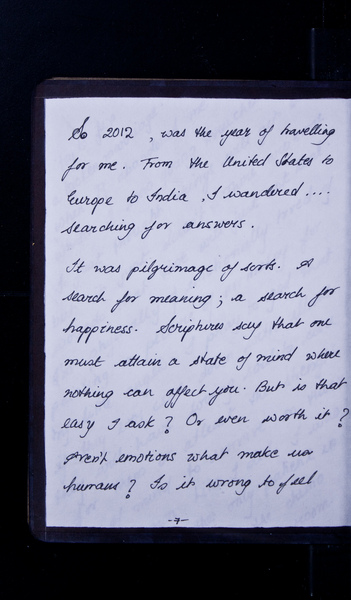 So 2012 , was the year of travelling
for me. From the United States to
Europe to India , I wandered ....
searching for answers.
It was pilgrimage of sorts. A
search for meaning ; a search for
happiness. Scriptures say that one
must attain a state of mind where
nothing can affect you. But is that
easy I ask? Or even worth it?
Aren't emotions what make us
humans? Is it wrong to feel
-7-